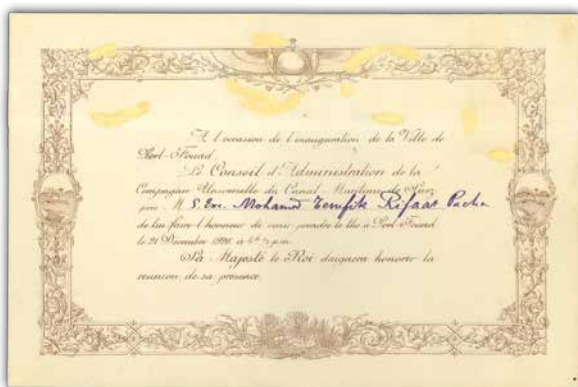 A l'occasion de l'inauguration de la Ville de
Port-Fouad
Le Conseil d'Administration de la
Compagnie Universelle du Canal Maritime de Suez
prie M S. Exc. Mohamed Tewfik Rifaat Pacha
de lui faire l'honneur de venir prendre le thé à Port-Fouad
le 21 Décembre 1926 à 4h ½ p.m.
Sa Majesté le Roi daignera honorer la
réunion de sa présence.